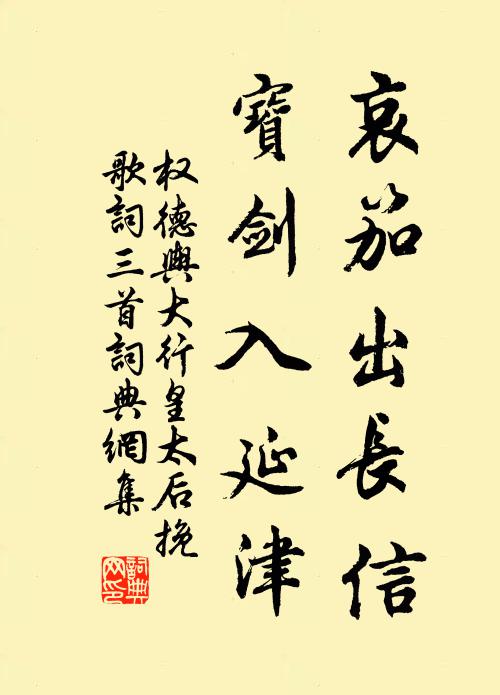 哀笳出長信
寶劍入延津
权德輿大行皇太后挽
歌詞三首詞典網集
詞典网印